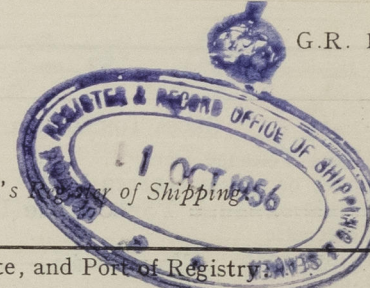 G.R.
REGISTER & RECORD OFFICE OF SHIPPING & SEAMEN
1 OCT 1956
's Register of Shipping.
te, and Port of Registry